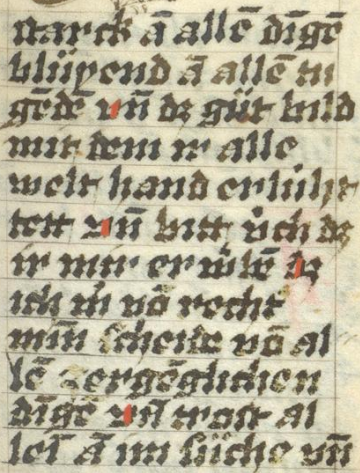 starck ā allē dīgē
blüyend ā allē tu
gēdē vn̄ dz gůt bild
mit dem ir alle
welt hand erlüht
tett vn̄ bitt üch dz
ir mir erwībē dz
ich vō recht
mīn scheide vō al
lē zergēglichen
dīgē vn̄ trost al
lei ā im süche vn̄